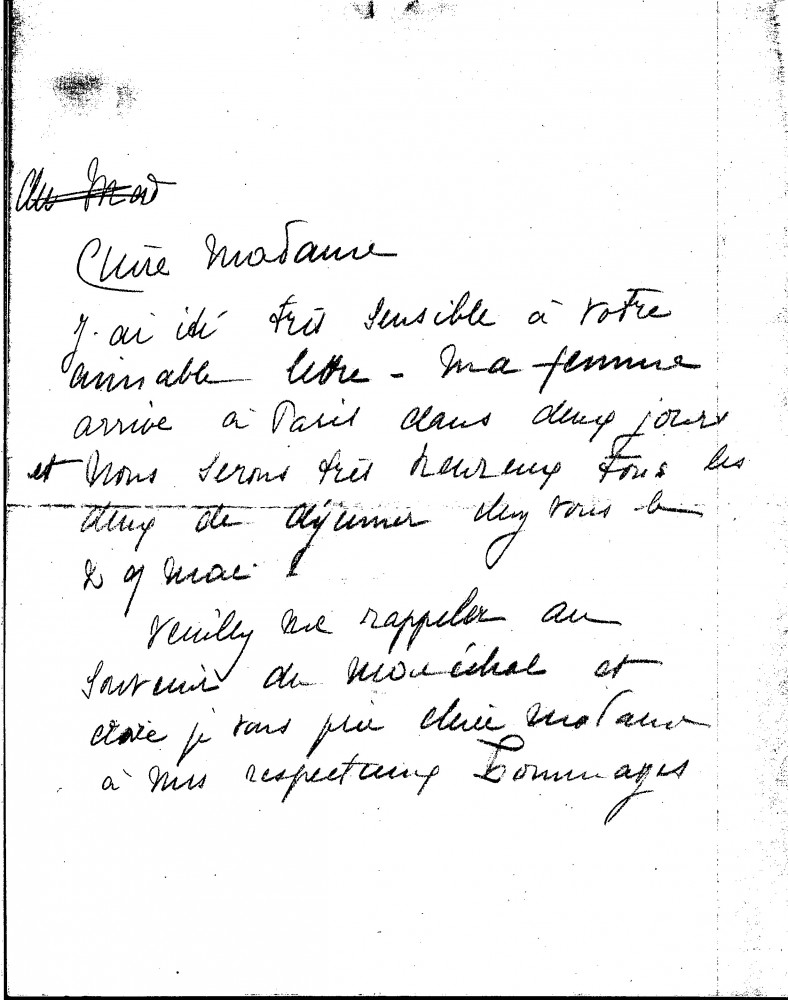 Chère Madame
J'ai été très sensible à votre
aimable lettre - Ma femme
arrive à Paris dans deux jours
et nous serons très heureux tous les
deux de déjeuner chez vous le
29 Mai.
Veuillez me rappeler au
souvenir du Maréchal et
croire je vous prie chère Madame
à mes respectueux hommages